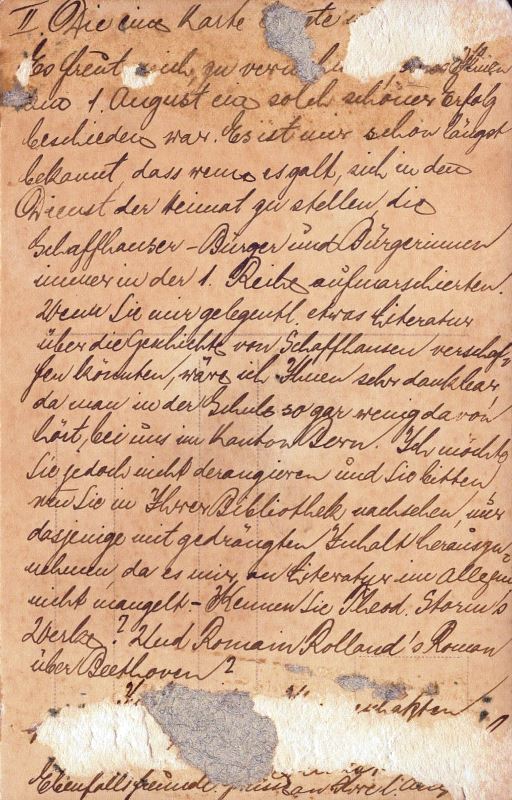 II. Die eine Karte
Es freut mich zu Ihnen
am 1. August ein solch schöner Erfolg
beschieden war. Es ist mir schon längst
bekannt, dass wenn es galt, sich in den
Dienst der Heimat zu stellen, die
Schaffhauser-Bürger und Bürgerinnen
immer in der 1. Reihe aufmarschierten.
Wenn Sie mir gelegentl. etwas Literatur
über die Geschichte von Schaffhausen verschaf-
fen könnten, wäre ich Ihnen sehr dankbar,
da man in der Schule so gar wenig davon
hört, bei uns im Kanton Bern. Ich möchte
Sie jedoch nicht derangieren und Sie bitten
wenn Sie in Ihrer Bibliothek nachsehen, nur
dasjenige mit gedrängten Inhalt herauszu-
nehmen, da es mir an Literatur im Allgem
nicht mangelt - Kennen Sie Theod. Storm's
Werke? Und Romain Rolland's Roman
über Beethoven?
Ebenfalls freundl.